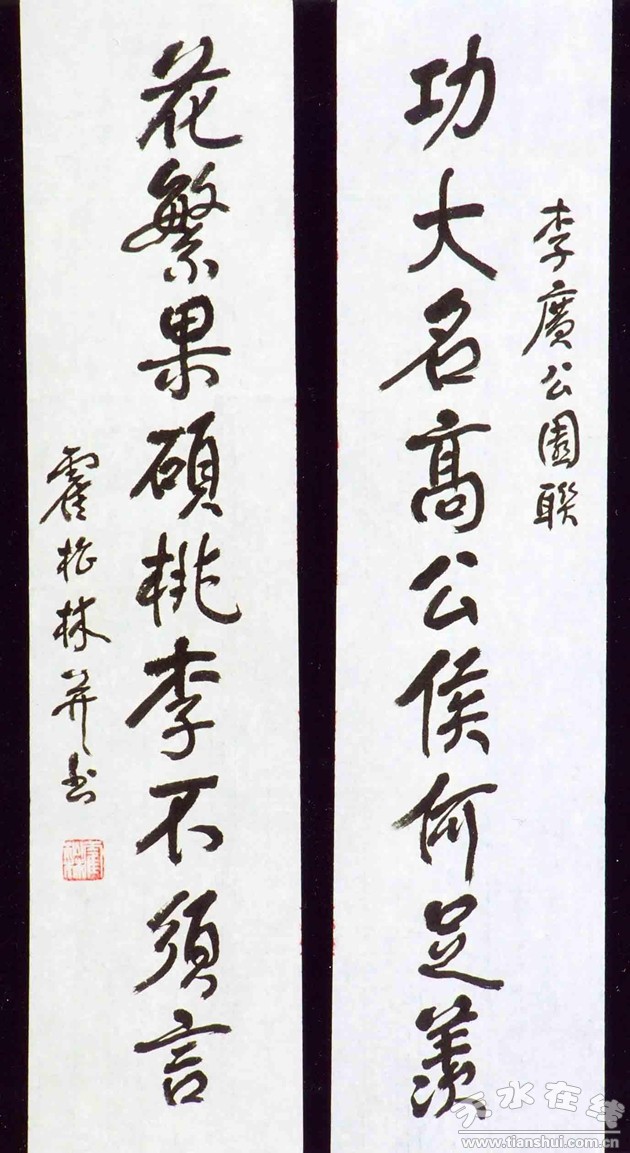 李廣公園聯
功大名高公侯何足羨
花繁果碩桃李不須言
霍松林并書
天水在线
www.tianshui.com.cn